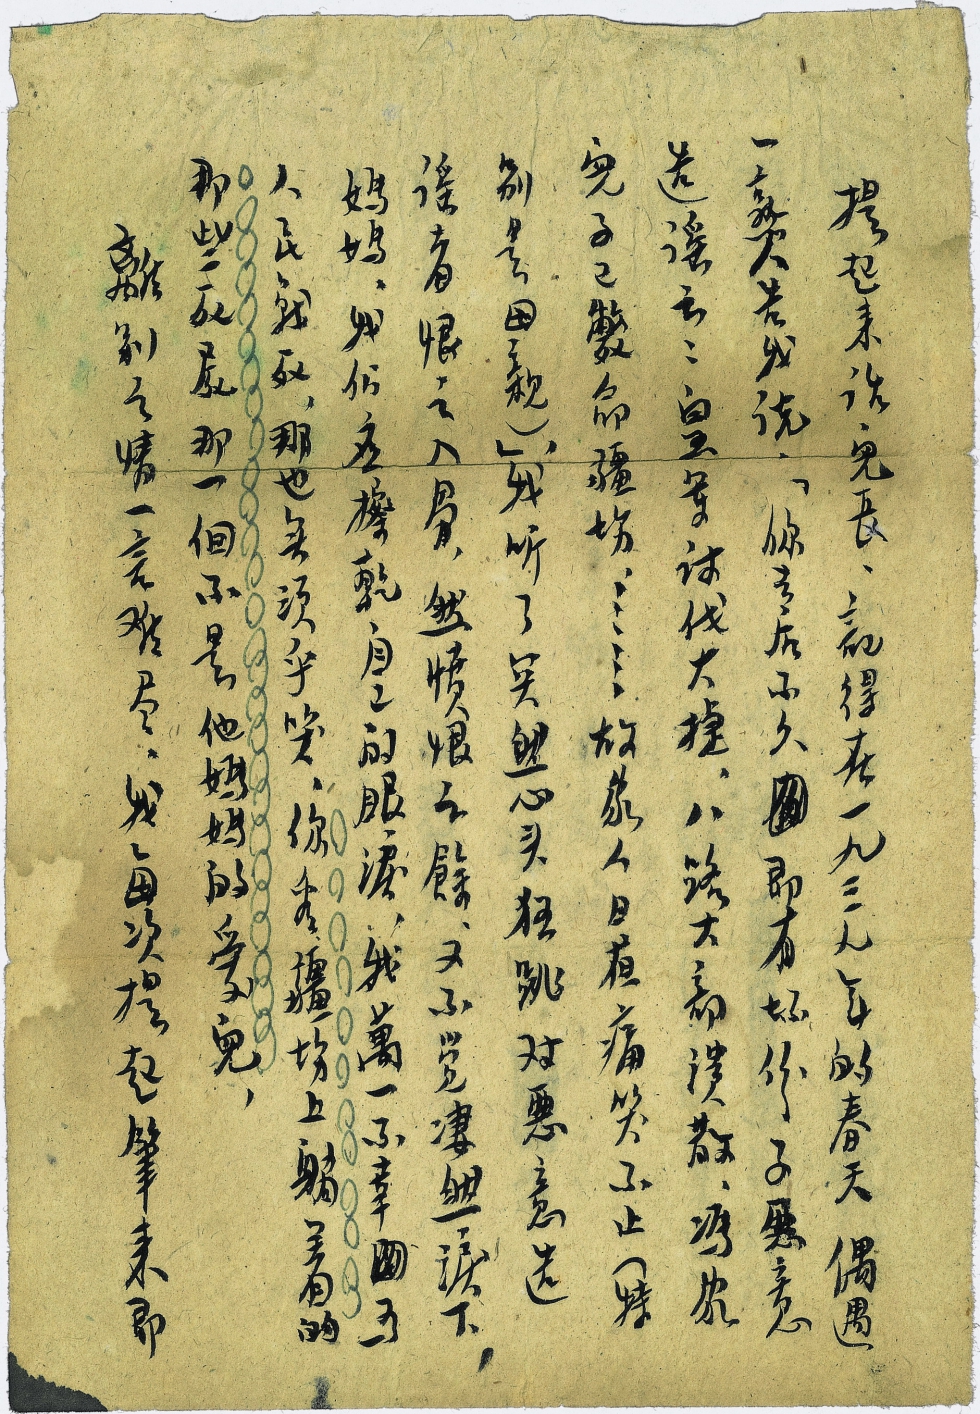 提起来話兒長、記得在一九三九年的春天 偶遇
一熟人告我說、「你走后不久 即有坏份子惡意
造謠云：白黑軍討伐大捷、八路大部潰散、馮家
兒子已斃命疆場、……故家人日夜痛哭不止（特
別是母親）」、我听了突然心头狂跳对惡意造
谣者恨之入骨、然憤恨之餘、又不覚凄然淚下、
媽媽、我们应擦乾自己的眼淚、我萬一不幸因为
人民戰死、那也無須乎哭、你看疆場上躺着的
那些死屍那一個不是他媽媽的愛兒、
離别之情一言难尽、我每次提起筆来即